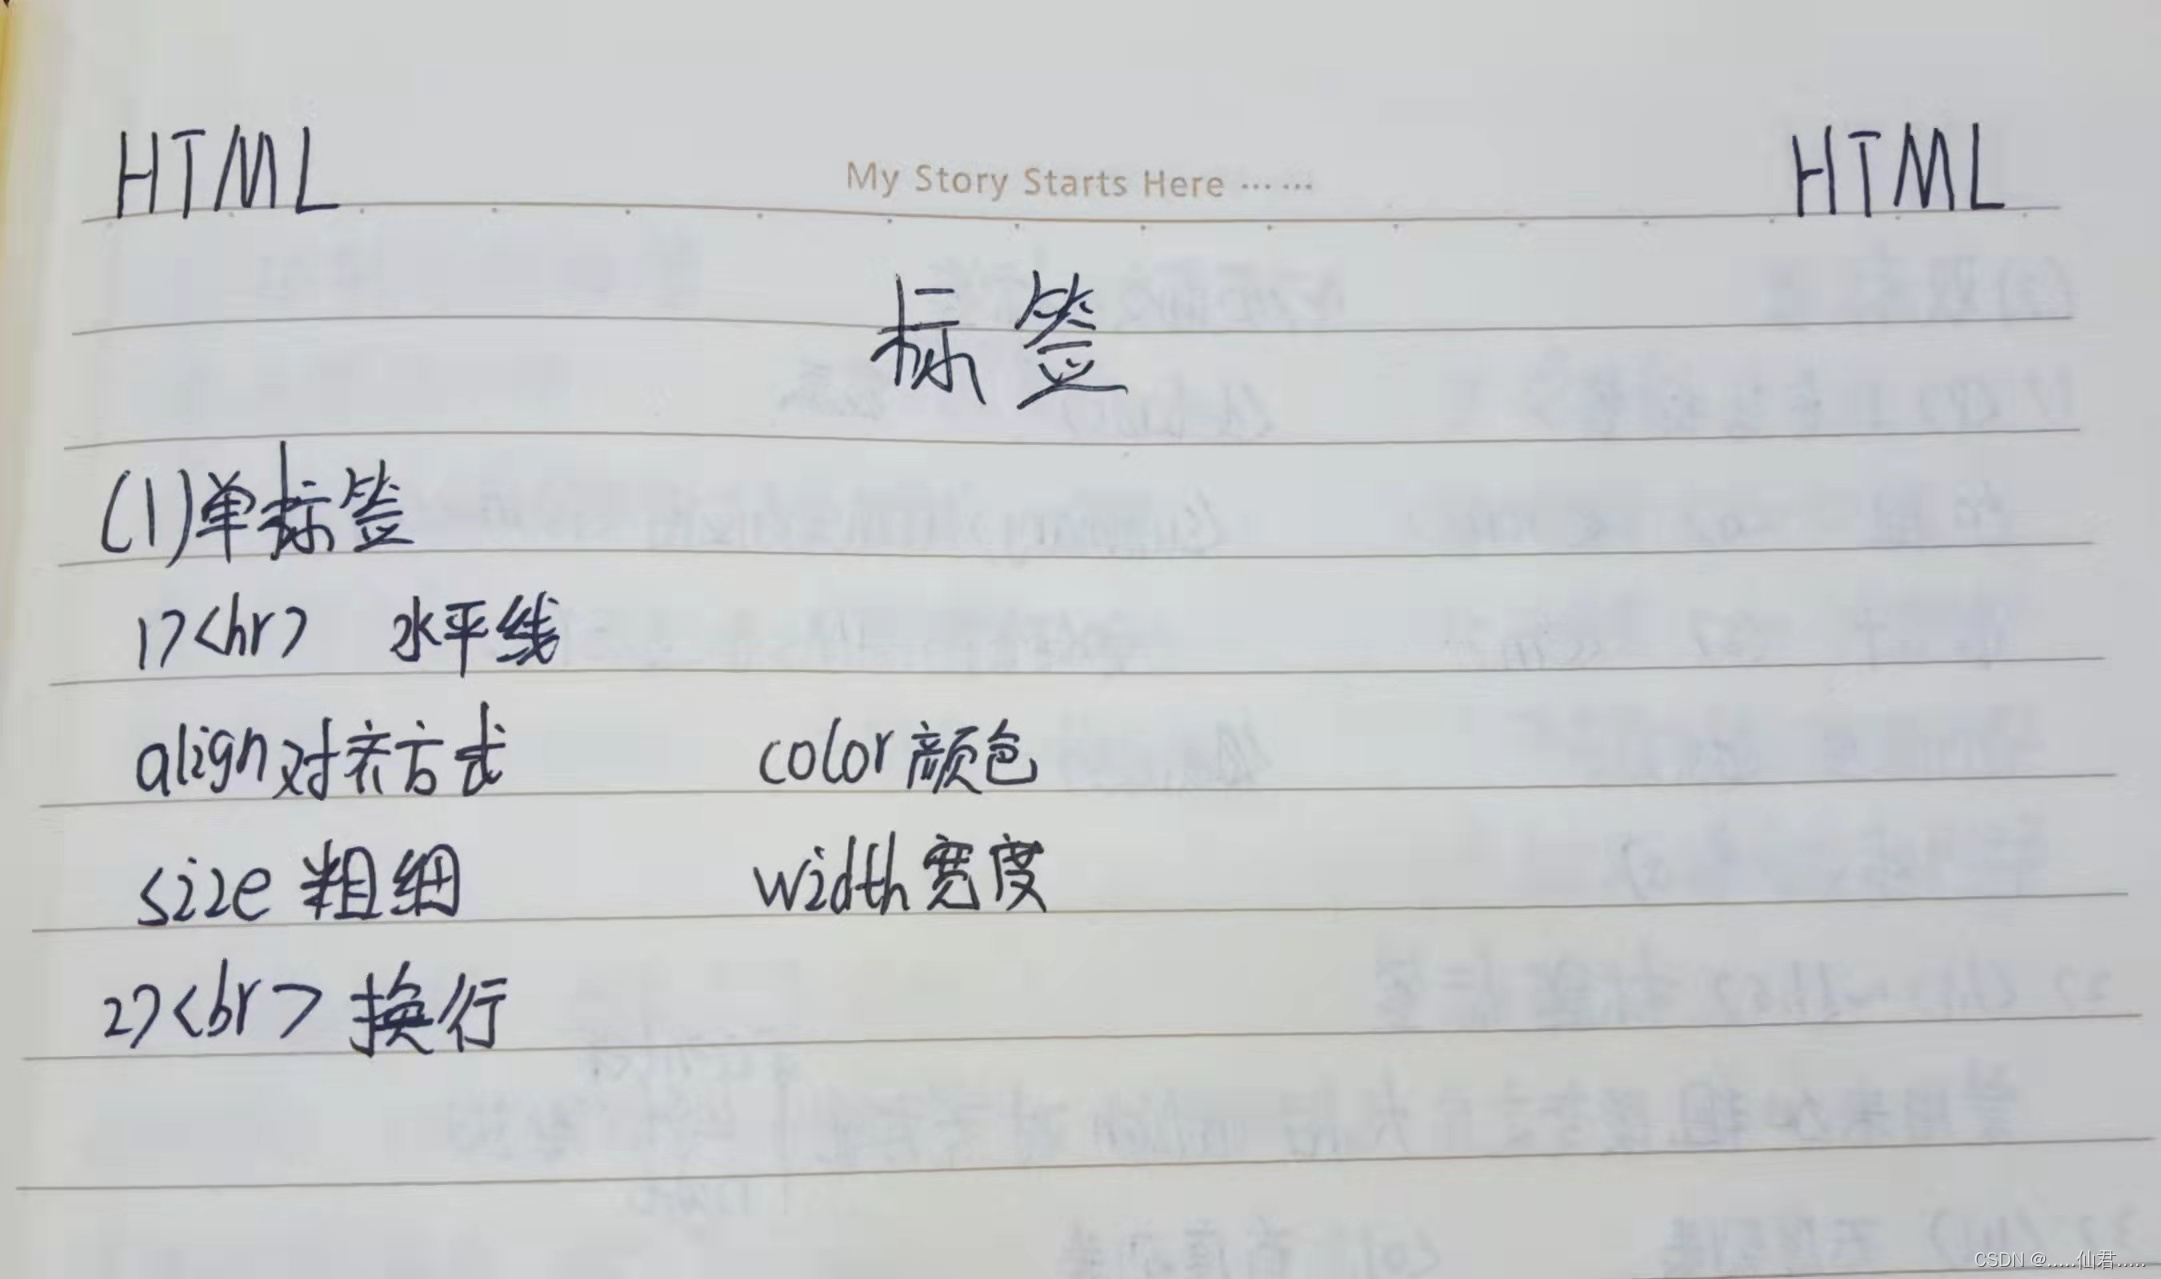 HTML My Story Starts Here ...... HTML
标签
(1)单标签
1><hr> 水平线
align对齐方式 color颜色
size 粗细 width宽度
2><br> 换行
CSDN @.....仙君.....